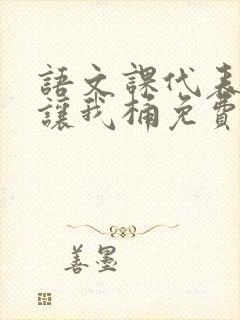 語文課代表
讓我桶免費
善墨